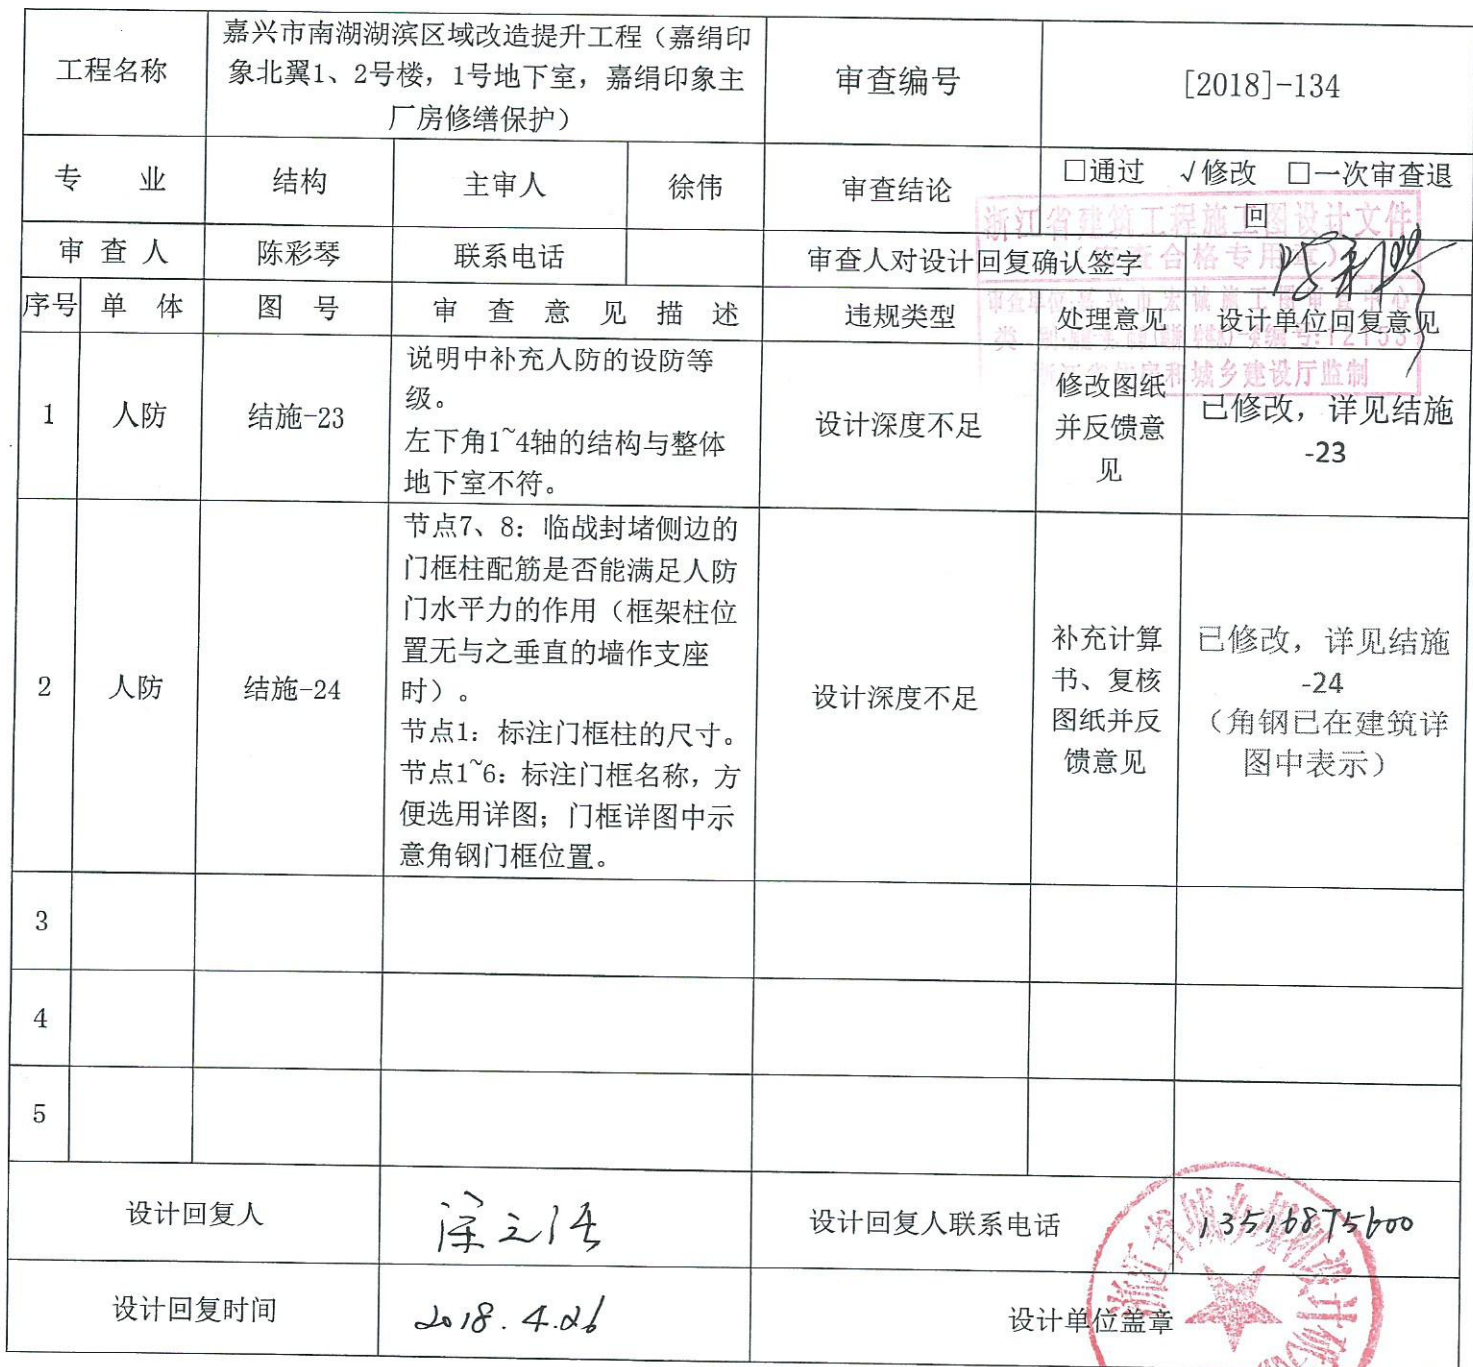 嘉兴市南湖湖滨区域改造提升工程（嘉绢印
工程名称
象北翼1、2号楼，1号地下室，嘉绢印象主
厂房修缮保护）
审查编号
[2018]-134
专 业
结构
主审人
徐伟
审查结论
□通过 √修改 □一次审查退
回
审 查 人
陈彩琴
联系电话
审查人对设计回复确认签字
浙江省建筑工程施工图设计文件
序号 单 体 图 号 审 查 意 见 描 述 违规类型 处理意见 设计单位回复意见
城乡建设厅监制
1
人防
结施-23
说明中补充人防的设防等
级。
左下角1~4轴的结构与整体
地下室不符。
设计深度不足
修改图纸
并反馈意
见
已修改，详见结施
-23
2
人防
结施-24
节点7、8：临战封堵侧边的
门框柱配筋是否能满足人防
门水平力的作用（框架柱位
置无与之垂直的墙作支座
时）。
节点1：标注门框柱的尺寸。
节点1~6：标注门框名称，方
便选用详图；门框详图中示
意角钢门框位置。
设计深度不足
补充计算
书、复核
图纸并反
馈意见
已修改，详见结施
-24
（角钢已在建筑详
图中表示）
3
4
5
设计回复人
设计回复人联系电话
13516875600
设计回复时间
2018.4.26
设计单位盖章